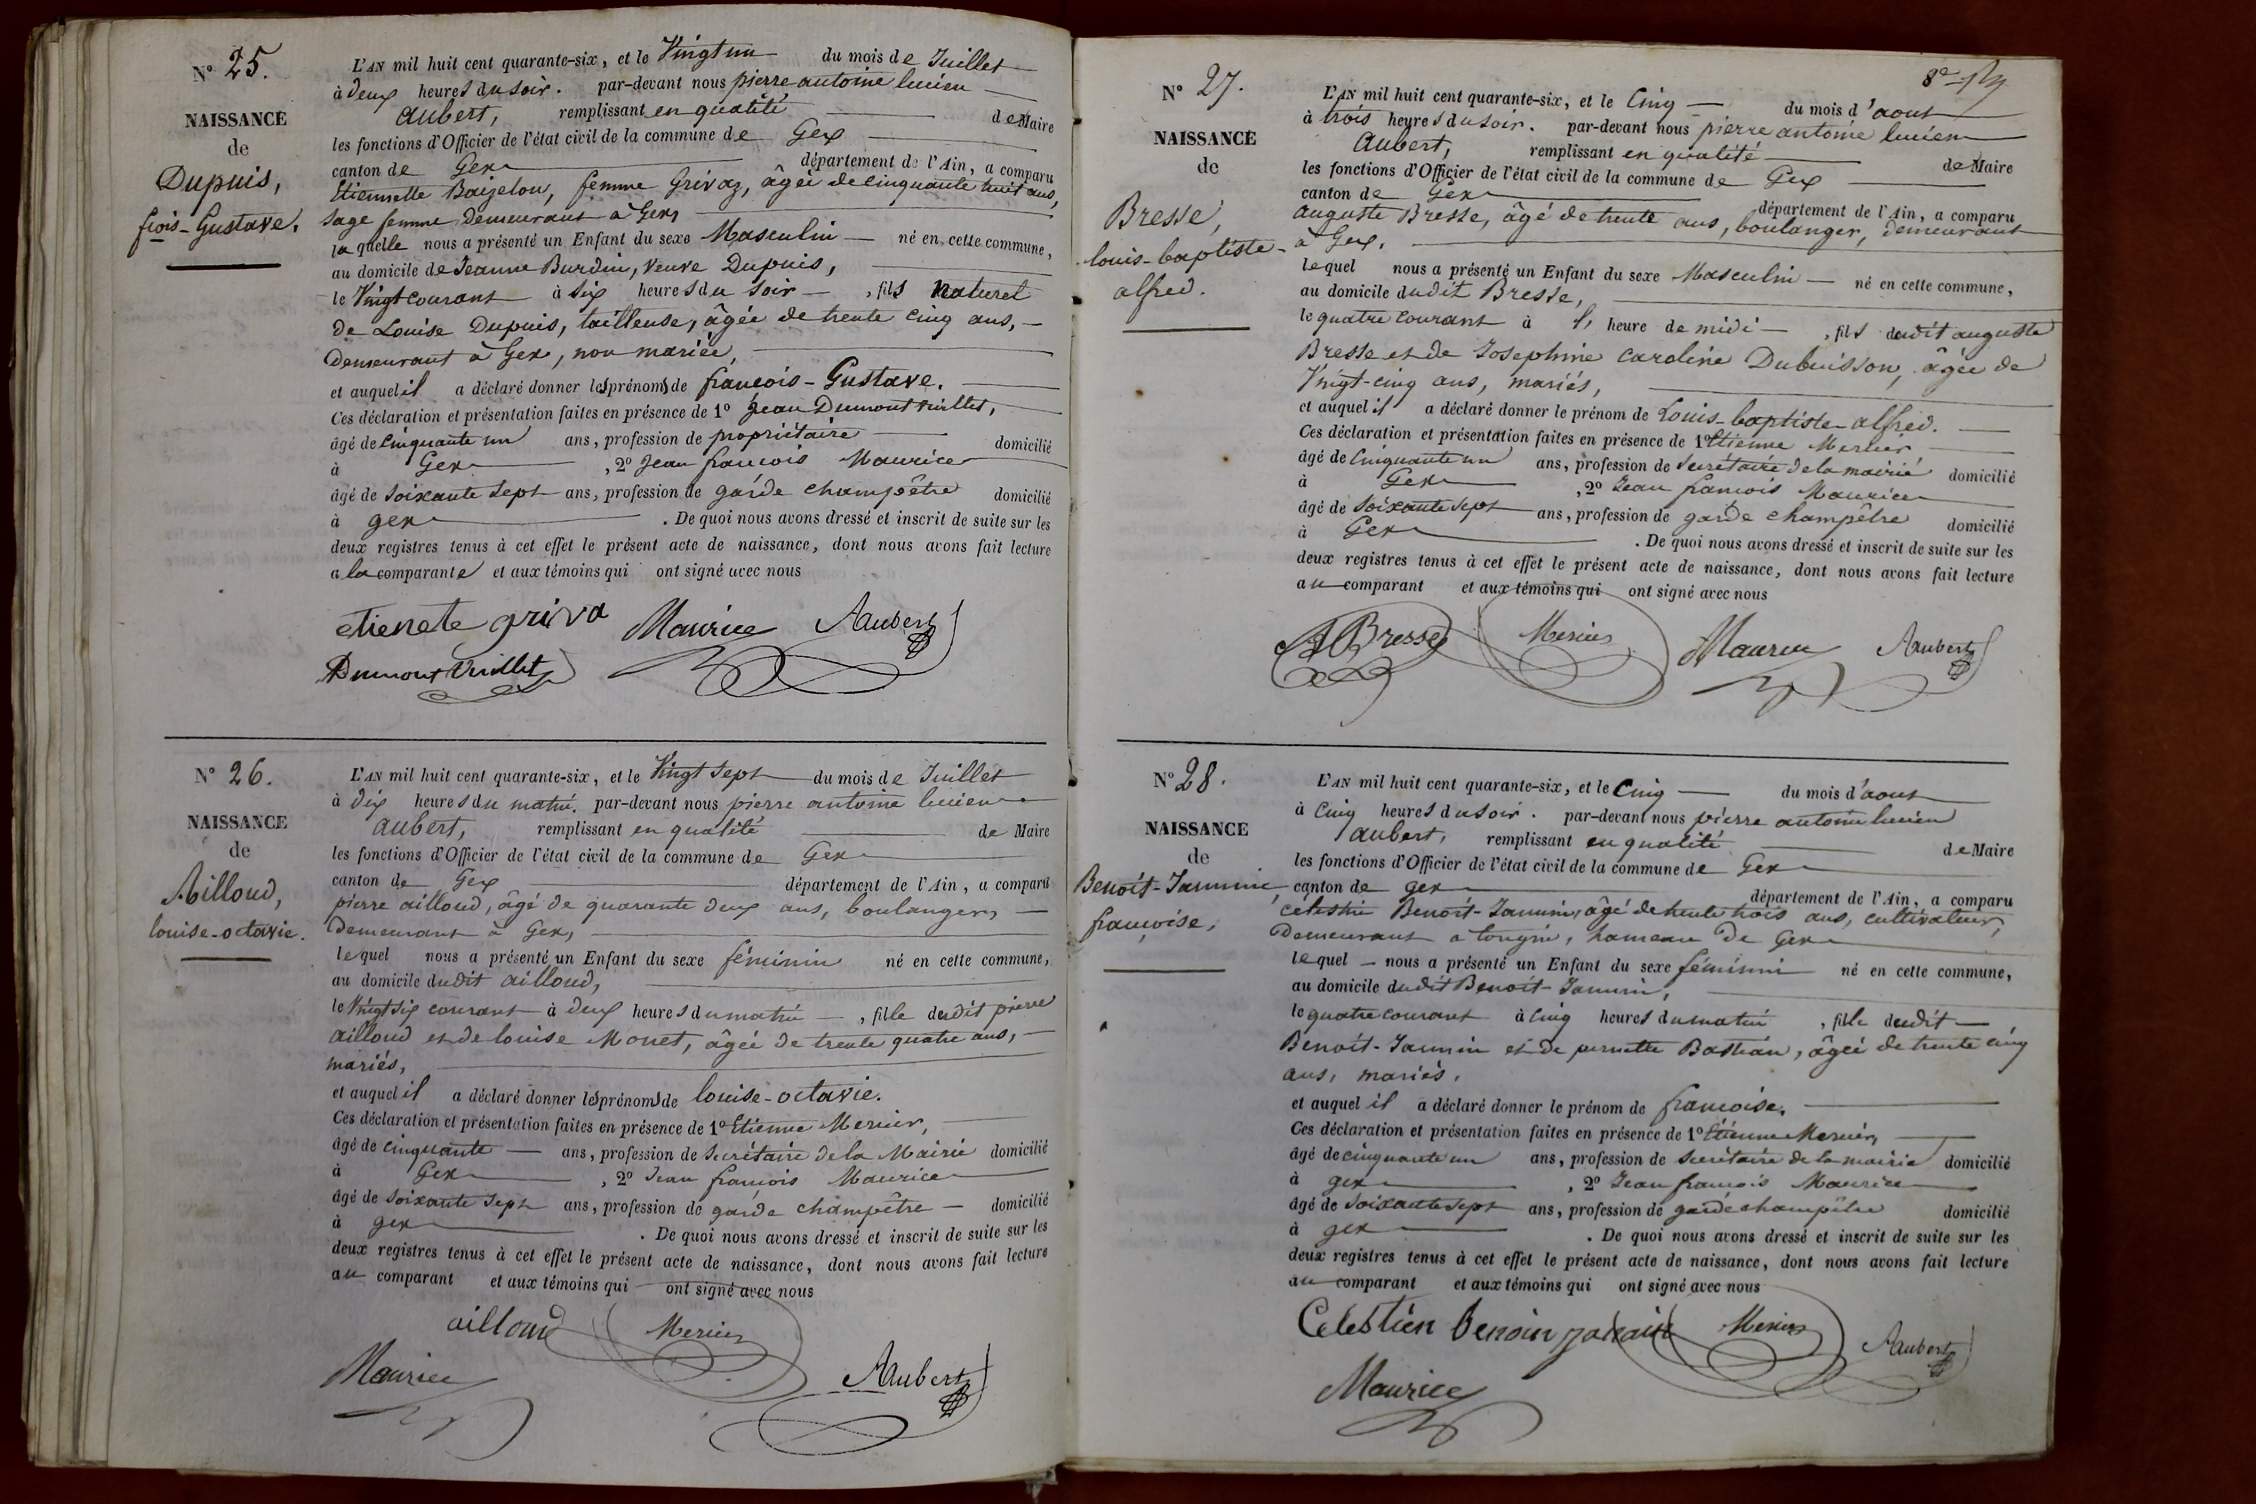 N° 25.
NAISSANCE
de
Dupuis,
fcois-Gustave.
L'AN mil huit cent quarante-six, et le Vingt un du mois de Juillet
à deux heures du soir. par-devant nous pierre antoine lucien
aubert, remplissant en qualité de Maire
les fonctions d'Officier de l'état civil de la commune de Gex
canton de Gex département de l'Ain, a comparu
Etiennette Baizelon, femme Grivaz, âgée de cinquante huit ans,
sage femme demeurant à Gex,
laquelle nous a présenté un Enfant du sexe Masculin né en cette commune,
au domicile de Jeanne Burdin, veuve Dupuis,
le Vingt courant à six heures du soir, fils naturel
de Louise Dupuis, tailleuse, âgée de trente cinq ans,
demeurant à Gex, non mariée,
et auquel il a déclaré donner les prénoms de françois-Gustave.
Ces déclaration et présentation faites en présence de 1° Jean Dumont Vuillet,
âgé de cinquante un ans, profession de propriétaire domicilié
à Gex, 2° Jean françois Maurice
âgé de soixante sept ans, profession de garde champêtre domicilié
à gex. De quoi nous avons dressé et inscrit de suite sur les
deux registres tenus à cet effet le présent acte de naissance, dont nous avons fait lecture
a la comparante et aux témoins qui ont signé avec nous
etienete griva Maurice Aaubert
Dumont Vuillet
N° 26.
NAISSANCE
de
Ailloud,
louise-octavie.
L'AN mil huit cent quarante-six, et le Vingt sept du mois de Juillet
à dix heures du matin. par-devant nous pierre antoine lucien
aubert, remplissant en qualité de Maire
les fonctions d'Officier de l'état civil de la commune de Gex
canton de Gex département de l'Ain, a comparu
pierre ailloud, âgé de quarante deux ans, boulanger,
demeurant à Gex,
lequel nous a présenté un Enfant du sexe féminin né en cette commune,
au domicile dudit ailloud,
le Vingt six courant à deux heures du matin, fille dudit pierre
ailloud et de louise Monet, âgée de trente quatre ans,
mariés,
et auquel il a déclaré donner les prénoms de louise-octavie.
Ces déclaration et présentation faites en présence de 1° Etienne Mercier,
âgé de cinquante ans, profession de secrétaire de la Mairie domicilié
à Gex, 2° Jean françois Maurice
âgé de soixante sept ans, profession de garde champêtre domicilié
à gex. De quoi nous avons dressé et inscrit de suite sur les
deux registres tenus à cet effet le présent acte de naissance, dont nous avons fait lecture
au comparant et aux témoins qui ont signé avec nous
ailloud Mercier
Maurice Aaubert
8e
N° 27.
NAISSANCE
de
Bresse,
louis-baptiste-
alfred.
L'AN mil huit cent quarante-six, et le Cinq du mois d'aout
à trois heures du soir. par-devant nous pierre antoine lucien
aubert, remplissant en qualité de Maire
les fonctions d'Officier de l'état civil de la commune de Gex
canton de Gex département de l'Ain, a comparu
auguste Bresse, âgé de trente ans, boulanger, demeurant
à Gex.
lequel nous a présenté un Enfant du sexe Masculin né en cette commune,
au domicile dudit Bresse,
le quatre courant à heure de midi, fils dudit auguste
Bresse et de Josephine Caroline Dubuisson, âgée de
Vingt-cinq ans, mariés,
et auquel il a déclaré donner le prénom de Louis-baptiste-alfred.
Ces déclaration et présentation faites en présence de 1° Etienne Mercier
âgé de Cinquante un ans, profession de secrétaire de la mairie domicilié
à Gex, 2° Jean françois Maurice
âgé de soixante sept ans, profession de garde champêtre domicilié
à Gex. De quoi nous avons dressé et inscrit de suite sur les
deux registres tenus à cet effet le présent acte de naissance, dont nous avons fait lecture
au comparant et aux témoins qui ont signé avec nous
A Bresse Mercier Maurice Aaubert
N° 28.
NAISSANCE
de
Benoît-Jannin,
françoise,
L'AN mil huit cent quarante-six, et le Cinq du mois d'aout
à Cinq heures du soir. par-devant nous pierre antoine lucien
aubert, remplissant en qualité de Maire
les fonctions d'Officier de l'état civil de la commune de Gex
canton de gex département de l'Ain, a comparu
célestin Benoît-Jannin, âgé de trente trois ans, cultivateur,
demeurant a tougin, hameau de Gex
lequel nous a présenté un Enfant du sexe féminin né en cette commune,
au domicile dudit Benoît-Jannin,
le quatre courant à cinq heures du matin, fille dudit
Benoît-Jannin et de pernette Bastian, âgée de trente cinq
ans, mariés.
et auquel il a déclaré donner le prénom de françoise.
Ces déclaration et présentation faites en présence de 1° Etienne Mercier,
âgé de cinquante un ans, profession de secrétaire de la mairie domicilié
à gex, 2° Jean françois Maurice
âgé de soixante sept ans, profession de garde champêtre domicilié
à gex. De quoi nous avons dressé et inscrit de suite sur les
deux registres tenus à cet effet le présent acte de naissance, dont nous avons fait lecture
au comparant et aux témoins qui ont signé avec nous
Celestien benoin Mercier Aaubert
Maurice